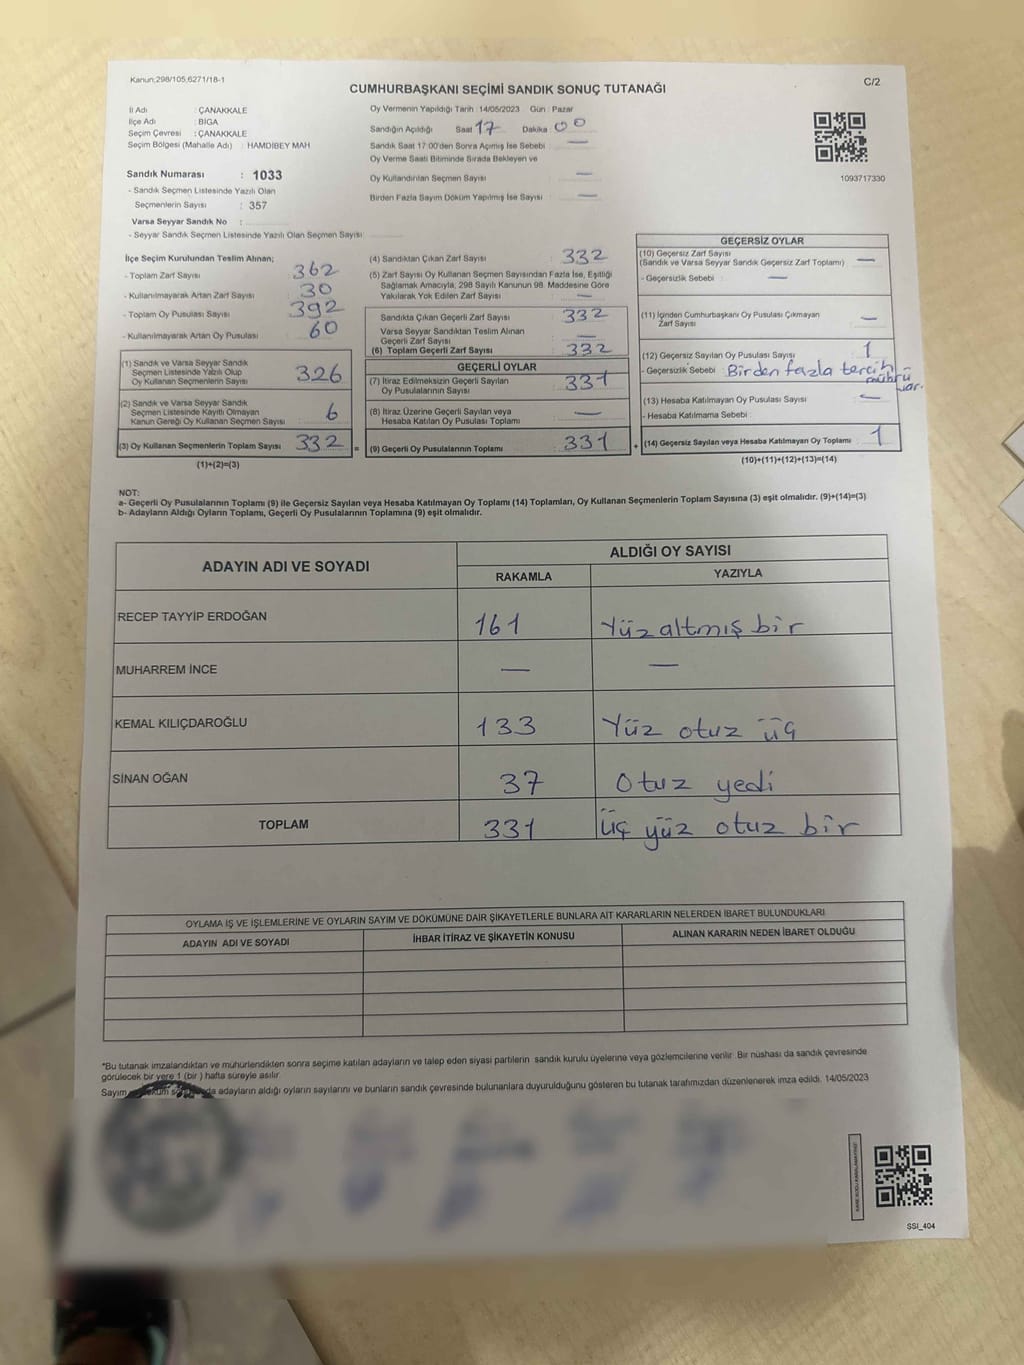 Kanun;298/105;6271/18-1
C/2
CUMHURBAŞKANI SEÇİMİ SANDIK SONUÇ TUTANAĞI
İl Adı : ÇANAKKALE
İlçe Adı : BİGA
Seçim Çevresi : ÇANAKKALE
Seçim Bölgesi (Mahalle Adı) : HAMDİBEY MAH
Sandık Numarası : 1033
- Sandık Seçmen Listesinde Yazılı Olan
Seçmenlerin Sayısı : 357
Varsa Seyyar Sandık No :
- Seyyar Sandık Seçmen Listesinde Yazılı Olan Seçmen Sayısı
Oy Vermenin Yapıldığı Tarih : 14/05/2023 Gün : Pazar
Sandığın Açıldığı Saat 17 Dakika 00
Sandık Saat 17:00'den Sonra Açımış İse Sebebi —
Oy Verme Saati Bitiminde Sırada Bekleyen ve
Oy Kullandırılan Seçmen Sayısı —
Birden Fazla Sayım Döküm Yapılmış İse Sayısı —
1093717330
İlçe Seçim Kurulundan Teslim Alınan;
- Toplam Zarf Sayısı 362
- Kullanılmayarak Artan Zarf Sayısı 30
- Toplam Oy Pusulası Sayısı 392
- Kullanılmayarak Artan Oy Pusulası 60
(1) Sandık ve Varsa Seyyar Sandık
Seçmen Listesinde Yazılı Olup
Oy Kullanan Seçmenlerin Sayısı 326
(2) Sandık ve Varsa Seyyar Sandık
Seçmen Listesinde Kayıtlı Olmayan
Kanun Gereği Oy Kullanan Seçmen Sayısı 6
(3) Oy Kullanan Seçmenlerin Toplam Sayısı 332 =
(1)+(2)=(3)
(4) Sandıktan Çıkan Zarf Sayısı : 332
(5) Zarf Sayısı Oy Kullanan Seçmen Sayısından Fazla İse, Eşitliği
Sağlamak Amacıyla, 298 Sayılı Kanunun 98. Maddesine Göre
Yakılarak Yok Edilen Zarf Sayısı : —
Sandıkta Çıkan Geçerli Zarf Sayısı : 332
Varsa Seyyar Sandıktan Teslim Alınan
Geçerli Zarf Sayısı : —
(6) Toplam Geçerli Zarf Sayısı : 332
GEÇERLİ OYLAR
(7) İtiraz Edilmeksizin Geçerli Sayılan
Oy Pusulalarının Sayısı : 331
(8) İtiraz Üzerine Geçerli Sayılan veya
Hesaba Katılan Oy Pusulası Toplamı : —
(9) Geçerli Oy Pusulalarının Toplamı : 331 +
GEÇERSİZ OYLAR
(10) Geçersiz Zarf Sayısı
(Sandık ve Varsa Seyyar Sandık Geçersiz Zarf Toplamı) —
- Geçersizlik Sebebi : —
(11) İçinden Cumhurbaşkanı Oy Pusulası Çıkmayan
Zarf Sayısı —
(12) Geçersiz Sayılan Oy Pusulası Sayısı 1
- Geçersizlik Sebebi : Birden fazla tercih
mührü
var.
(13) Hesaba Katılmayan Oy Pusulası Sayısı : —
- Hesaba Katılmama Sebebi :
(14) Geçersiz Sayılan veya Hesaba Katılmayan Oy Toplamı : 1
(10)+(11)+(12)+(13)=(14)
NOT:
a- Geçerli Oy Pusulalarının Toplamı (9) ile Geçersiz Sayılan veya Hesaba Katılmayan Oy Toplamı (14) Toplamları, Oy Kullanan Seçmenlerin Toplam Sayısına (3) eşit olmalıdır. (9)+(14)=(3)
b- Adayların Aldığı Oyların Toplamı, Geçerli Oy Pusulalarının Toplamına (9) eşit olmalıdır.
ADAYIN ADI VE SOYADI
ALDIĞI OY SAYISI
RAKAMLA YAZIYLA
RECEP TAYYİP ERDOĞAN 161 Yüz altmış bir
MUHARREM İNCE — —
KEMAL KILIÇDAROĞLU 133 Yüz otuz üç
SİNAN OĞAN 37 Otuz yedi
TOPLAM 331 Üç yüz otuz bir
OYLAMA İŞ VE İŞLEMLERİNE VE OYLARIN SAYIM VE DÖKÜMÜNE DAİR ŞİKAYETLERLE BUNLARA AİT KARARLARIN NELERDEN İBARET BULUNDUKLARI
ADAYIN ADI VE SOYADI İHBAR İTİRAZ VE ŞİKAYETİN KONUSU ALINAN KARARIN NEDEN İBARET OLDUĞU
*Bu tutanak imzalandıktan ve mühürlendikten sonra seçime katılan adayların ve talep eden siyasi partilerin sandık kurulu üyelerine veya gözlemcilerine verilir. Bir nüshası da sandık çevresinde
görülecek bir yere 1 (bir ) hafta süreyle asılır.
Sayım adayların aldığı oyların sayılarını ve bunların sandık çevresinde bulunanlara duyurulduğunu gösteren bu tutanak tarafımızdan düzenlenerek imza edildi. 14/05/2023
SSI_404